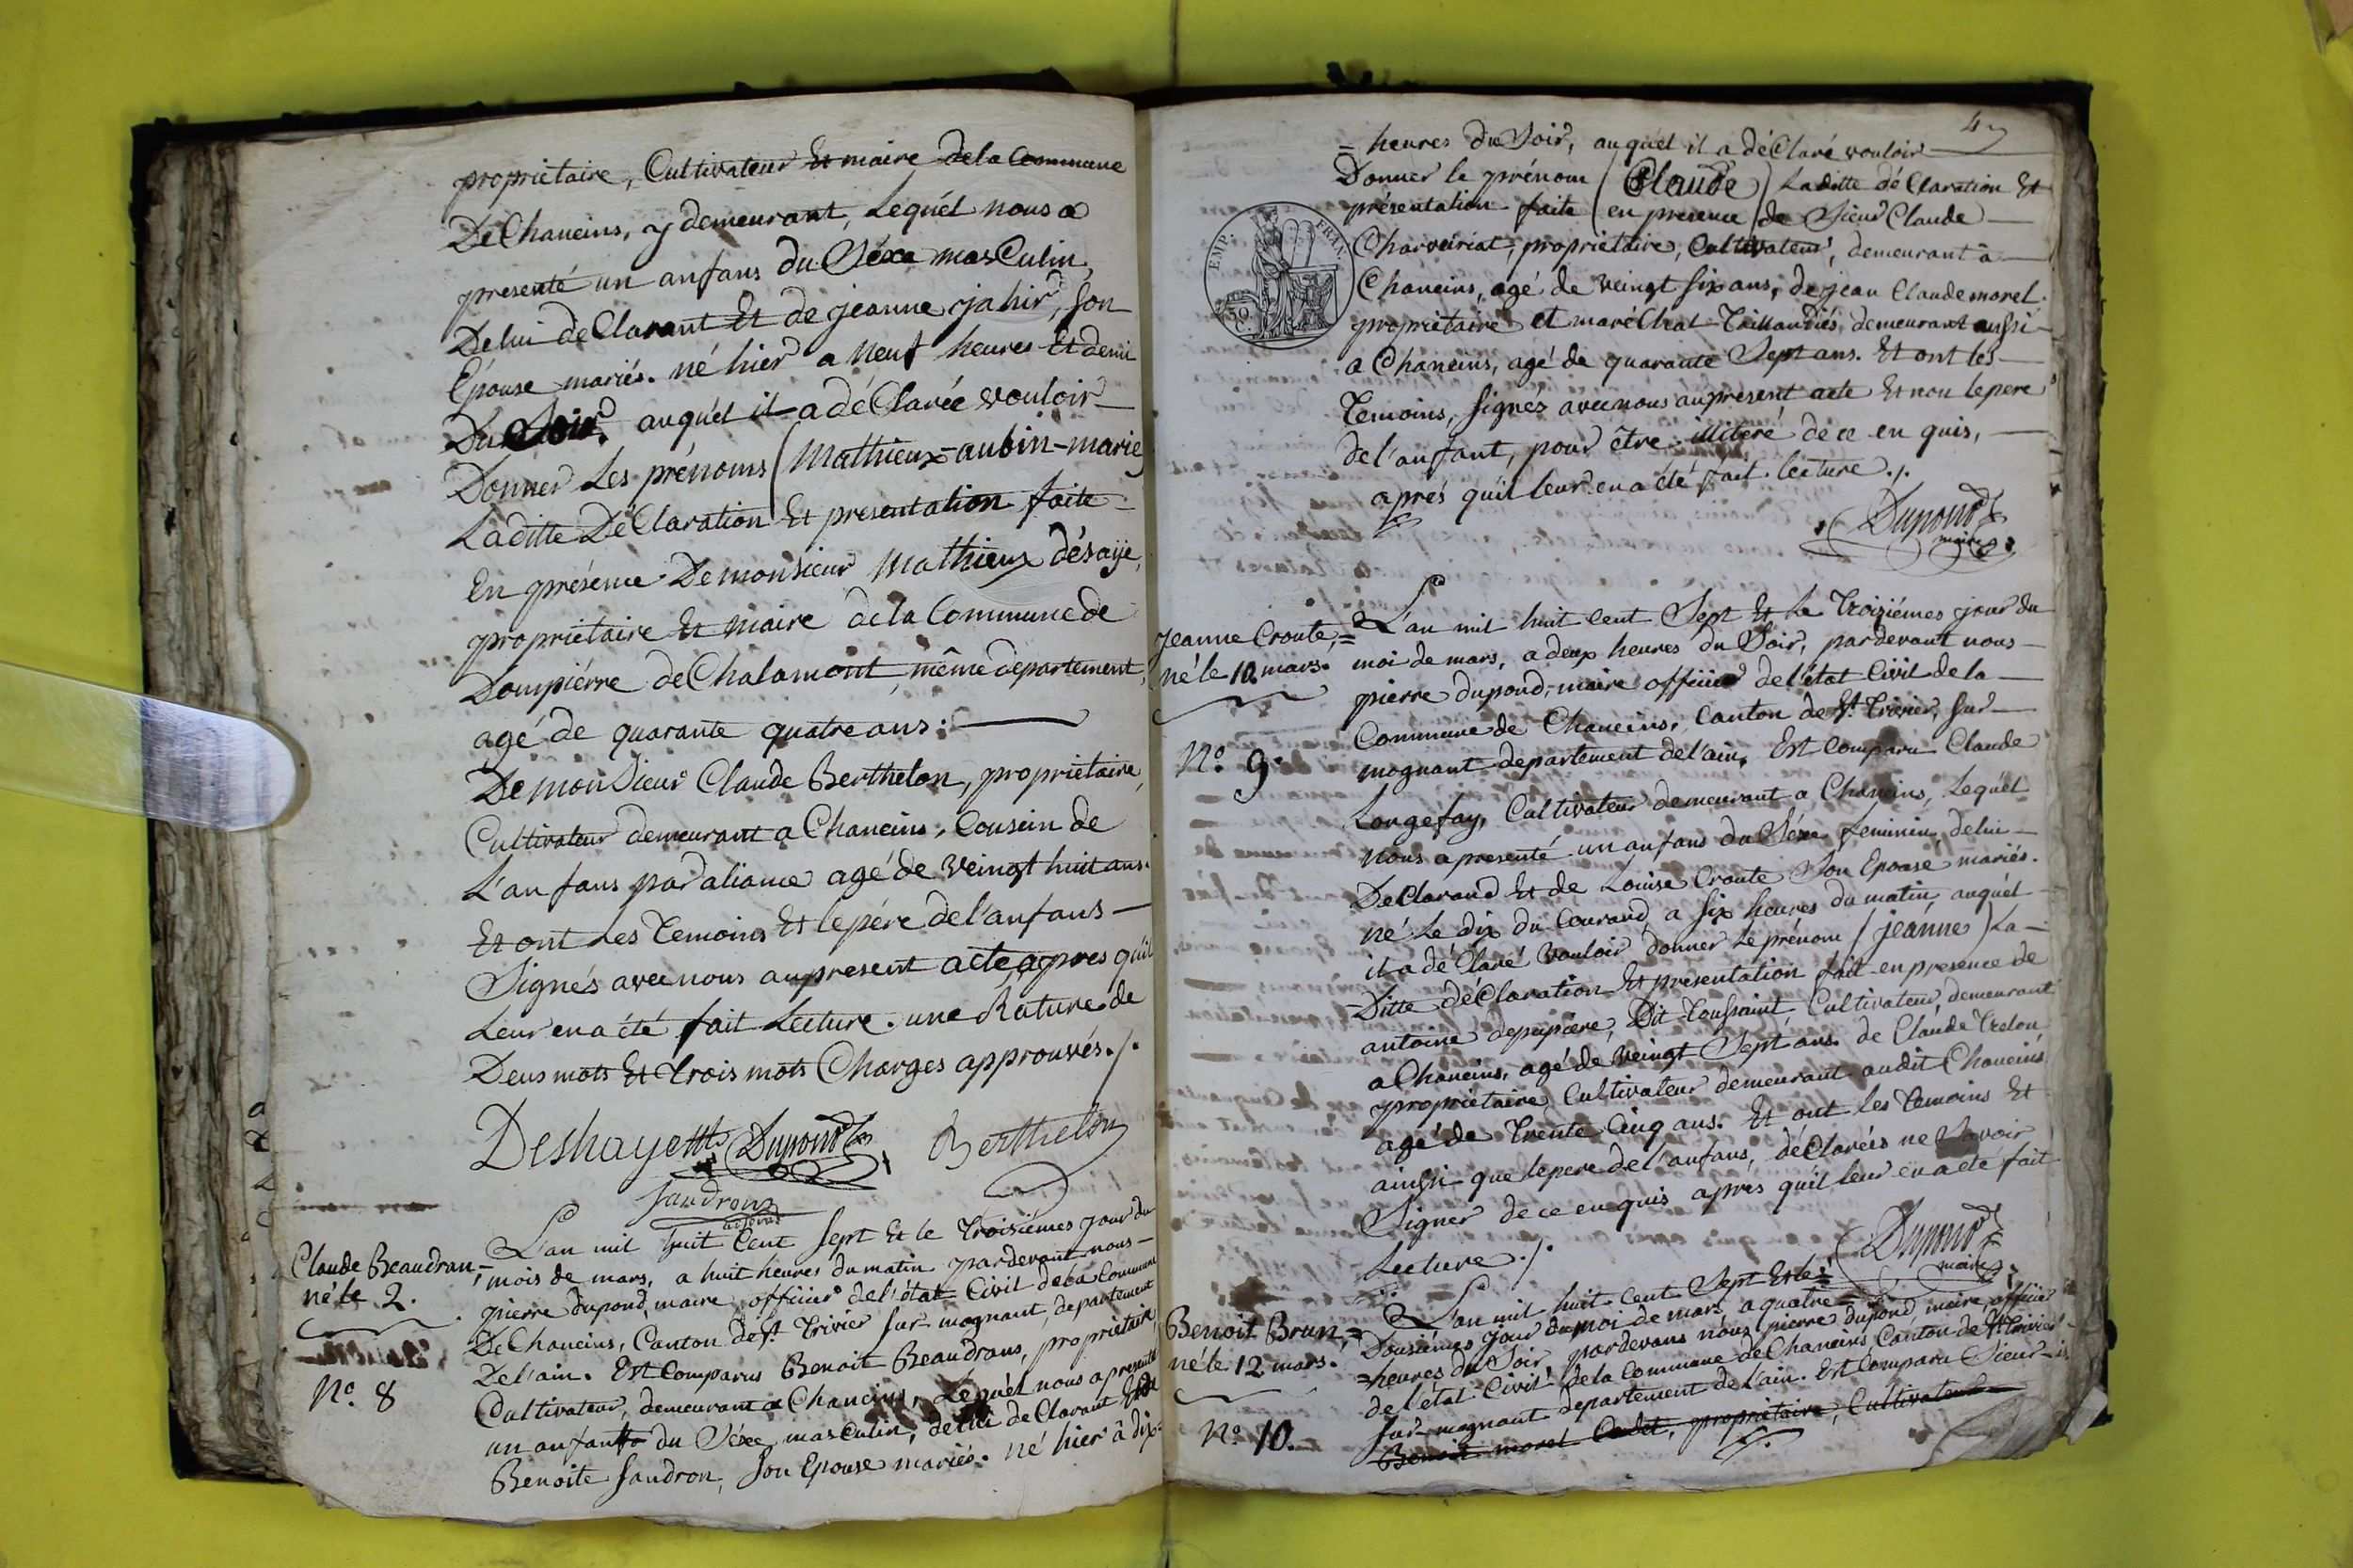 propriétaire, Cultivateur Et maire de la Commune
De Chaneins, y demeurant, Lequél nous a
presenté un anfans du Séxe masCulin,
De lui déClarant Et de jeanne jahir, Son
Epouse mariés. né hier a neuf heures Et demi
Du Soir. auquél il a déClarée vouloir
Donner Les prénoms (Mathieux-aubin-marie)
Laditte DéClaration Et presentation faite
En présence De monsieur Mathieux désaye,
propriétaire Et Maire de la Commune de
Dompiérre de Chalamont, même département,
agé de quarante quatre ans.
De monsieur Claude Berthelon, propriétaire,
Cultivateur demeurant a Chaneins, Cousin de
L'anfans par aliance agé de veingt huit ans.
Et ont Les Temoins Et le pére de l'anfans
Signés avec nous au present acte apres qu'il
Leur en a été fait Lecture. une Rature de
Deus mots Et trois mots Charges approuvés./.
Deshayett Dupond Berthelon
Sandron
Claude Beaudran,
né le 2.
N° 8
L'an mil huit Cent Sept Et le Troisiémes jour du
mois de mars, a huit heures du matin pardevant nous
pierre dupond, maire officier de l'état Civil de la Commune
De Chaneins, Canton de St Trivier Sur mognant, departement
De l'ain. Est Comparus Benoit Beaudrans, propriétaire
Cultivateur, demeurant a Chaneins, Lequél nous a presenté
un anfant du Séxe masCulin, de lui deClarant Et de
Benoite Sandron, Son Epouse mariés. né hier à dix
4
= heures du Soir, auquél il a déClaré vouloir
Donner le prénom (Claude) Laditte déClaration Et
présentation faite en presence de Sieur Claude
Charveiriat, propriétaire, Cultivateur, demeurant à
Chaneins, agé de veingt six ans, de jean Claude morel
propriétaire et maréChal Taillandiés, demeurant aussi
a Chaneins, agé de quarante Sept ans. Et ont les
Temoins, signés avec nous au présent acte Et non le pere
de l'anfant, pour être illiteré de ce en quis,
aprés qu'il leur en a été fait lecture./.
EMP. FRAN.
50 C.
Dupond
maire
Jeanne Croute, =
né le 10 mars.
N° 9.
L'an mil huit Cent Sept Et Le Troiziémes jour du
moi de mars, a deux heures du Soir, pardevant nous
pierre dupond, maire officier de l'état Civil de la
Commune de Chaneins, Canton de St Trivier, Sur
mognant departement de l'ain, Est Comparu Claude
Longefay, Cultivateur demeurant a Chaneins, Lequél
nous a presenté un anfans du Séxe feminin, de lui
DeClarand Et de Louise Croute Son Epouse mariés.
né Le dix du Courand, a six heures du matin auquél
il a déClaré vouloir donner Le prénom (jeánne) La
Ditte déClaration Et presentation fait en presence de
antoine depupiere, Dit Toussaint, Cultivateur, demeurant
a Chaneins, agé de veingt Sept ans. de Claude Trelon
propriétaire, Cultivateur demeurant audit Chaneins
agé de Trente Cinq ans. Et ont les Temoins Et
ainssi que le pere de l'anfans, déClarées ne Savoir
Signer de ce en quis apres qu'il leur en a été fait
Lecture./.
Dupond
maire
Benoit Brun, =
né le 12 mars.
N° 10.
L'an mil huit Cent Sept Et le
Dousiémes jour du moi de mars a quatre
= heures du Soir, pardevans nous pierre dupond maire, officier
de l'état Civil de la Commune de Chaneins, Canton de St Trivier
Sur mognant departement de l'ain. Est Comparu Sieur
Benoit morel Cadet, propriétaire, Cultivateur